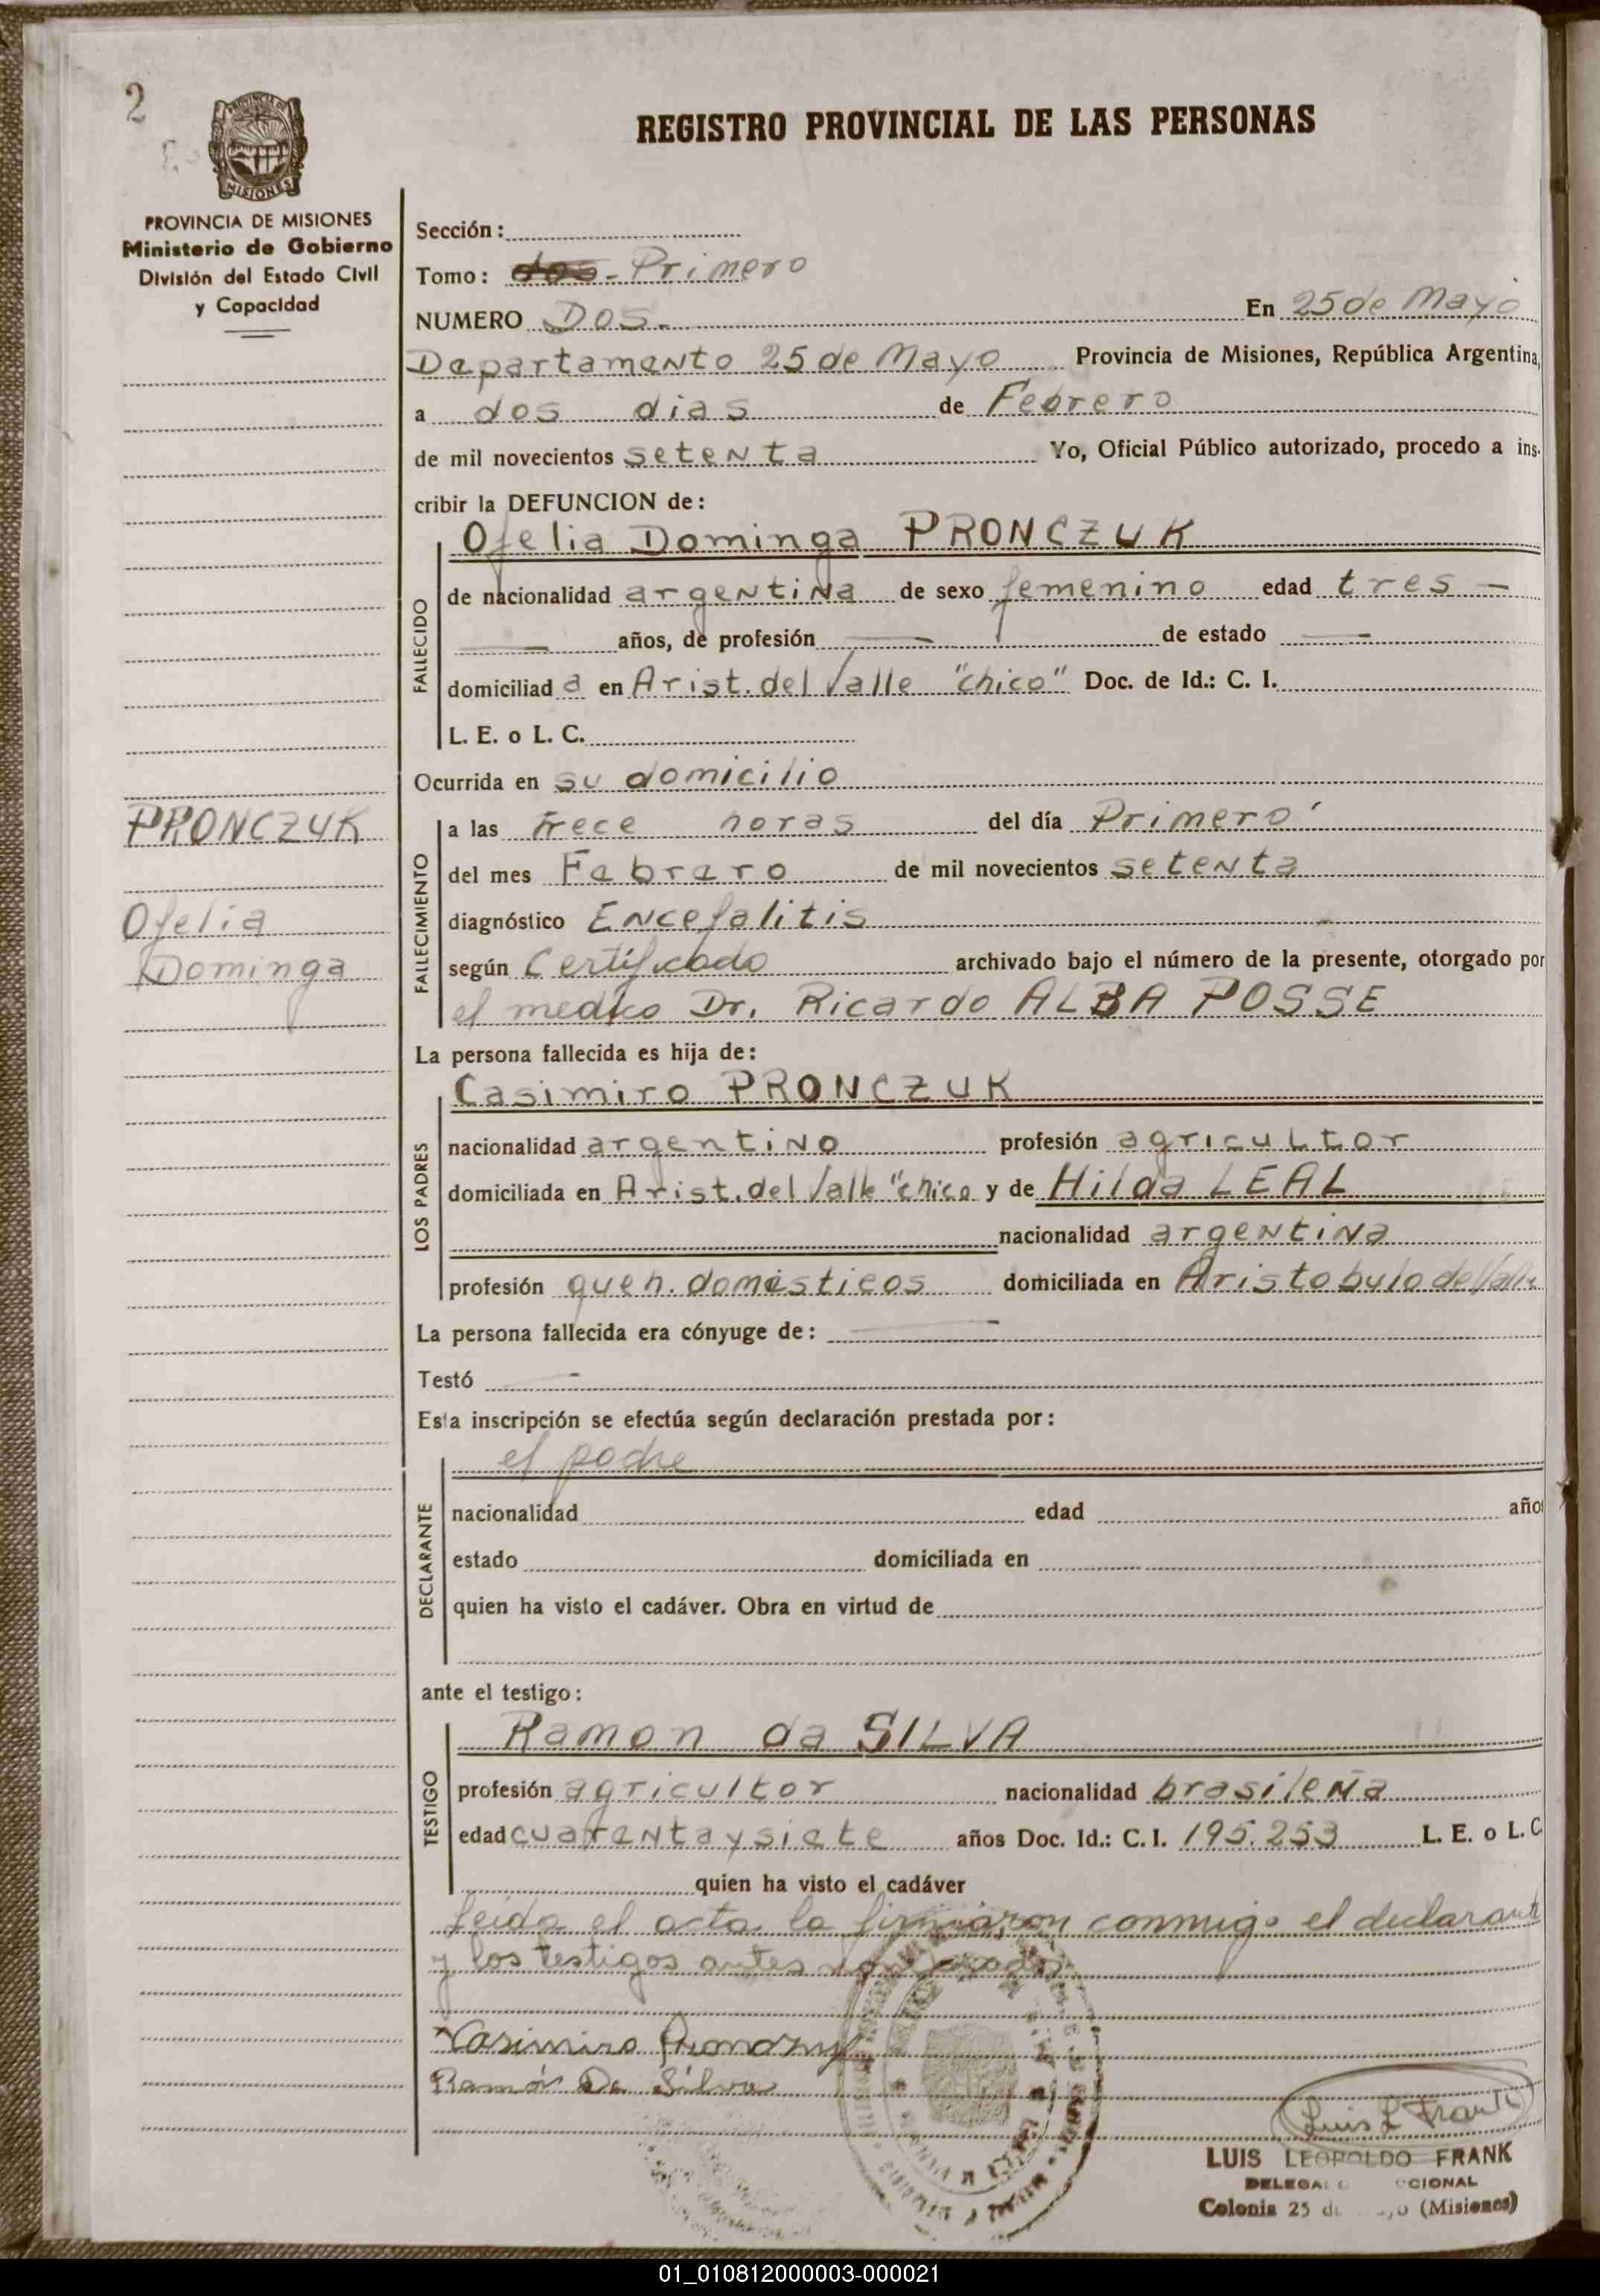 2
REGISTRO PROVINCIAL DE LAS PERSONAS
MISIONES
PROVINCIA DE MISIONES
Ministerio de Gobierno
División del Estado Civil
y Capacidad
Sección:
Tomo: dos - Primero
NUMERO Dos.- En 25 de Mayo
Departamento 25 de Mayo Provincia de Misiones, República Argentina,
a dos dias de Febrero
de mil novecientos setenta Yo, Oficial Público autorizado, procedo a ins-
cribir la DEFUNCION de:
Ofelia Dominga PRONCZUK
FALLECIDO
de nacionalidad argentina de sexo femenino edad tres —
— años, de profesión — de estado —
domiciliad a en Arist. del Valle "chico" Doc. de Id.: C. I.
L. E. o L. C.
Ocurrida en su domicilio
PRONCZUK
Ofelia
Dominga
FALLECIMIENTO
a las Trece horas del día Primero
del mes Febrero de mil novecientos setenta
diagnóstico Encefalitis
según Certificado archivado bajo el número de la presente, otorgado por
el medico Dr. Ricardo ALBA POSSE
La persona fallecida es hija de:
Casimiro PRONCZUK
LOS PADRES
nacionalidad argentino profesión agricultor
domiciliada en Arist. del Valle "chico y de Hilda LEAL
nacionalidad argentina
profesión queh. domésticos domiciliada en Aristobulo del Valle
La persona fallecida era cónyuge de: —
Testó —
Esta inscripción se efectúa según declaración prestada por:
el padre
DECLARANTE
nacionalidad edad año
estado domiciliada en
quien ha visto el cadáver. Obra en virtud de
ante el testigo:
Ramon da SILVA
TESTIGO
profesión agricultor nacionalidad brasileña
edad cuarenta y siete años Doc. Id.: C. I. 195.253 L. E. o L. C.
quien ha visto el cadáver
Leida el acta la firmaron conmigo el declarante
y los testigos antes nombrados
Casimiro Pronczuk
Ramón Da Silva
Luis L Frank
LUIS LEOPOLDO FRANK
Colonia 25 de (Misiones)
01_010812000003-000021